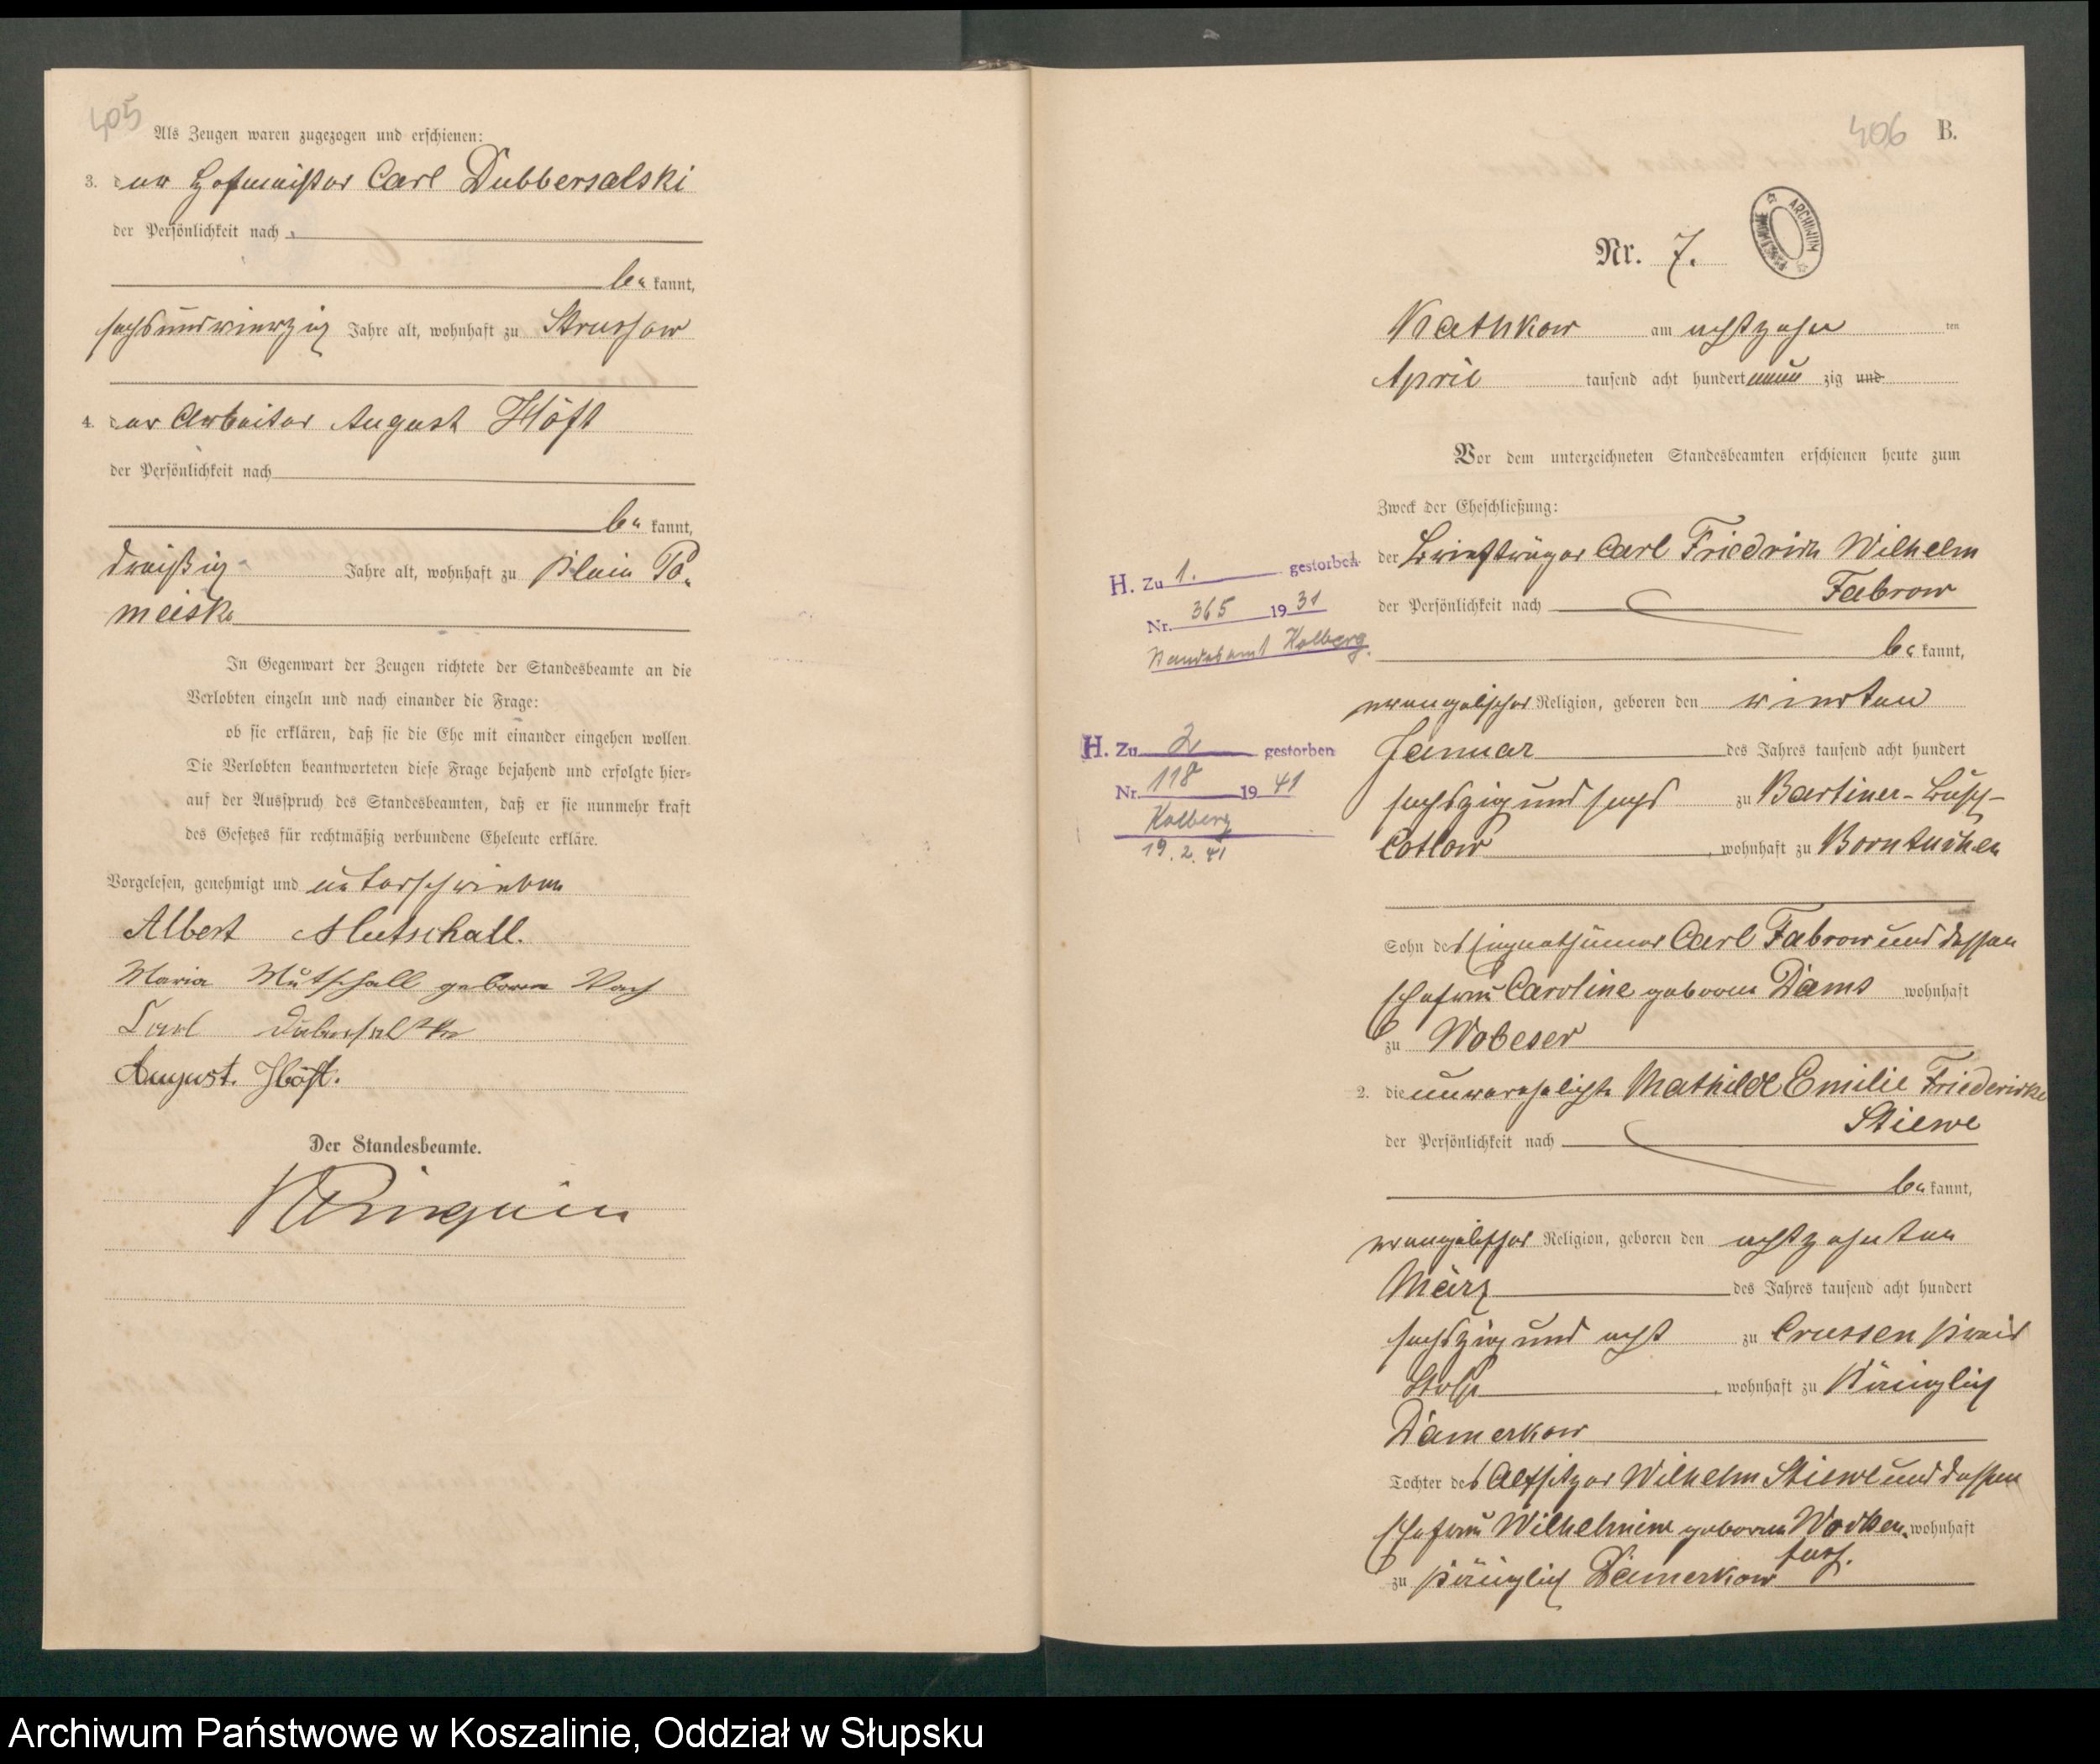 405
Als Zeugen waren zugezogen und erschienen:
3. der Hofmeister Carl Dubbersalski
der Persönlichkeit nach
be kannt,
sechsundvierzig Jahre alt, wohnhaft zu Strussow
4. der Arbeiter August Höft
der Persönlichkeit nach
be kannt,
dreißig Jahre alt, wohnhaft zu Klein Po-
meiske
In Gegenwart der Zeugen richtete der Standesbeamte an die
Verlobten einzeln und nach einander die Frage:
ob sie erklären, daß sie die Ehe mit einander eingehen wollen.
Die Verlobten beantworteten diese Frage bejahend und erfolgte hier-
auf der Ausspruch des Standesbeamten, daß er sie nunmehr kraft
des Gesetzes für rechtmäßig verbundene Eheleute erkläre.
Vorgelesen, genehmigt und unterschrieben
Albert Mutschall.
Maria Mutschall geboren
Carl
August. Höft.
Der Standesbeamte.
406 B.
ARCHIWUM
Nr. 7.
Kathkow am achtzehn ten
April tausend acht hundert neun zig und
Vor dem unterzeichneten Standesbeamten erschienen heute zum
Zweck der Eheschließung:
der Briefträger Carl Friedrich Wilhelm
Fabrow
der Persönlichkeit nach
be kannt,
evangelischer Religion, geboren den vierten
Januar des Jahres tausend acht hundert
sechszig und sechs zu Bartiner-Busch-
Cotlow, wohnhaft zu Borntuchen
Sohn des Eigenthümer Carl Fabrow und dessen
Ehefrau Caroline geboren Dams wohnhaft
zu Wobeser
2. die unverehelichte Mathilde Emilie Friedericke
Stiewe
der Persönlichkeit nach
be kannt,
evangelischer Religion, geboren den achtzehnten
März des Jahres tausend acht hundert
sechszig und acht zu Crussen Kreis
Stolp, wohnhaft zu Königlich
Damerkow
Tochter des Altsitzer Wilhelm Stiewe und dessen
Ehefrau Wilhelmine geboren Wocken- wohnhaft
fuss.
zu Königlich Damerkow
H. Zu 1. gestorben
Nr. 365 1931
Standesamt Kolberg.
H. Zu 2 gestorben
Nr. 118 1941
Kolberg
19.2.41
Archiwum Państwowe w Koszalinie, Oddział w Słupsku